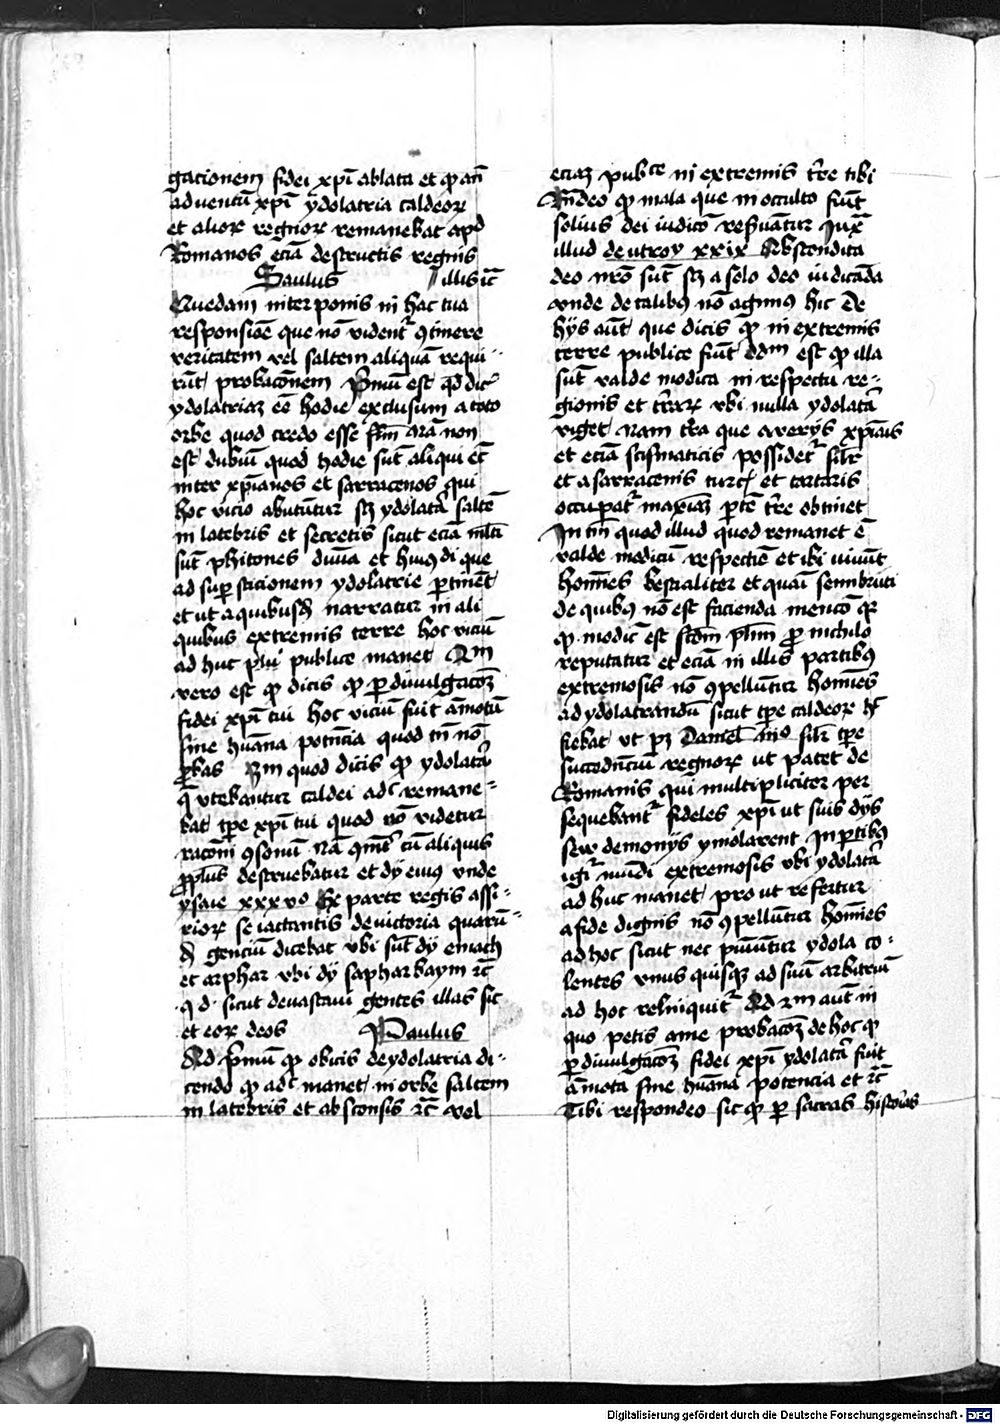 gacionem fidei xp̄i ablata et qꝫ an̄
adventū xp̄i ydolatria caldeoꝝ
et alioꝝ regnoꝝ remanebat apd̄
Romanos eciā destructis regnis
Saulus illis ic̄
Quedam interponis in hac tua
responsiōe que nō vident᷑ ꝯtinere
veritatem vel saltem aliquā requi-
rūt probacōnem Pͥmū est qd̄ dic̄
ydolatriaꝫ eē hodie exclusum a toto
orbe quod credo esse fl̄m nā non
est dubiū quod hodie sūt aliqui ec̄
inter xp̄ianos et sarracenos qui
hoc vicio abutūtur sꝫ ydolatͥa saltē
in latebris et secretis sicut eciā ml̄ti
sūt phitones divīa et huiꝰdi que
ad sup̱sticionem ydolatrie ꝑtinēt
et ut a quibusdā narratur in ali
quibus extremis terre hoc viciū
ad huc plͥ publice manet 2m
vero est qꝫ dicis qꝫ ꝑ divulgacōꝫ
fidei xp̄i tui hoc viciū fuit āmotū
sine hūana potn̄cia quod tn̄ nō
ꝓbas 3m quod dicis qꝫ ydolatͥa
q̄ utebantur caldei adͨ remane-
bat tꝑe xp̄i tui quod nō videtur
racōni ꝯsonū Nā qn̄ cū aliquis
ꝓpl̄us destruebatur et dy eiuꝰ vnde
ysaie xxxvo Ex parte regis assi-
rioꝝ se iactantis de victoria quarū-
dā genciū dicebat vbi sūt dy emach
et arphar vbi dy sapharbaym ꝛc̄
q̄ d. sicut devastavi gentes illas sic
et eoꝝ deos Paulus
Ad pͥmū qꝫ obicis de ydolatria di-
cendo qꝫ adͨ manet in orbe saltem
in latebris et absconsis ꝛc̄ vel
eciaꝫ pubͨe in extremis tr̄e tibi
Rn̄deo qꝫ mala que in occulto fiūt
solius dei iudico resͬvātur Iuxͣ
illud deutroy xxix Abscondita
deo nr̄o sūt sꝫ a solo deo iudicāda
vnde de talibꝰ nō agimꝰ hic De
hys aūt que dicis qꝫ in extremis
terre publice fiūt dd̄m est qꝫ illa
sūt valde modica in respectu re-
gionis et tr̄aꝝ vbi nulla ydolatͥa
viget Nam tr̄a que a verys xp̄ianis
et eciā scismaticis possidet᷑ silr̄
et a sarracenis turcꝭ et tartaris
occupat᷑ maxīaꝫ ꝑtē tr̄e obtinet
In tm̄ quod illud quod remanet ē
valde modicū respectīe et ibi vivūt
homīes bestialiter et quasi semibruti
de quibꝰ nō est facienda mencō qꝛ
qꝫ modicͫ est scd̄m phm̄ ꝓ nichilo
reputatur et eciā in illis partibꝰ
extremosis nō ꝯpellūtur homīes
ad ydolatrandū sicut tꝑe caldeoꝝ hͦ
fiebat ut pꝫ Daniel iiio silr̄ tꝑe
succedn̄ciū regnoꝝ ut patet de
Romanis qui multipliciter per
sequebant᷑ fideles xp̄i ut suis dys
sew demonys ymolarent In ꝑtibꝰ
igr̄ mūdi extremosis vbi ydolatͥa
ad huc manet prout refertur
a fide dignis nō ꝯpellūtur homīes
ad hoc sicut nec puūtur ydola co-
lentes vnus quisqꝫ ad suū arbitriū
ad hoc relinquit᷑ Ad 2m aūt in
quo petis a me probacōꝫ de hoc qꝫ
ꝑ divulgacōꝫ fidei xp̄i ydolatͥa fuit
āmota sine hūana potencia et ꝛc̄
Tibi respondeo sic qꝫ ꝑ sacras historias
Digitalisierung gefördert durch die Deutsche Forschungsgemeinschaft - DFG